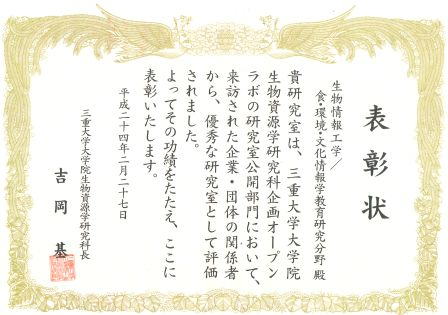 表彰状
生物情報工学／
食・環境・文化情報学教育研究分野 殿
貴研究室は、三重大学大学院
生物資源学研究科企画オープン
ラボの研究室公開部門において、
来訪された企業・団体の関係者
から、優秀な研究室として評価
されました。
よってその功績をたたえ、ここに
表彰いたします。
平成二十四年二月二十七日
三重大学大学院生物資源学研究科長
吉岡 基